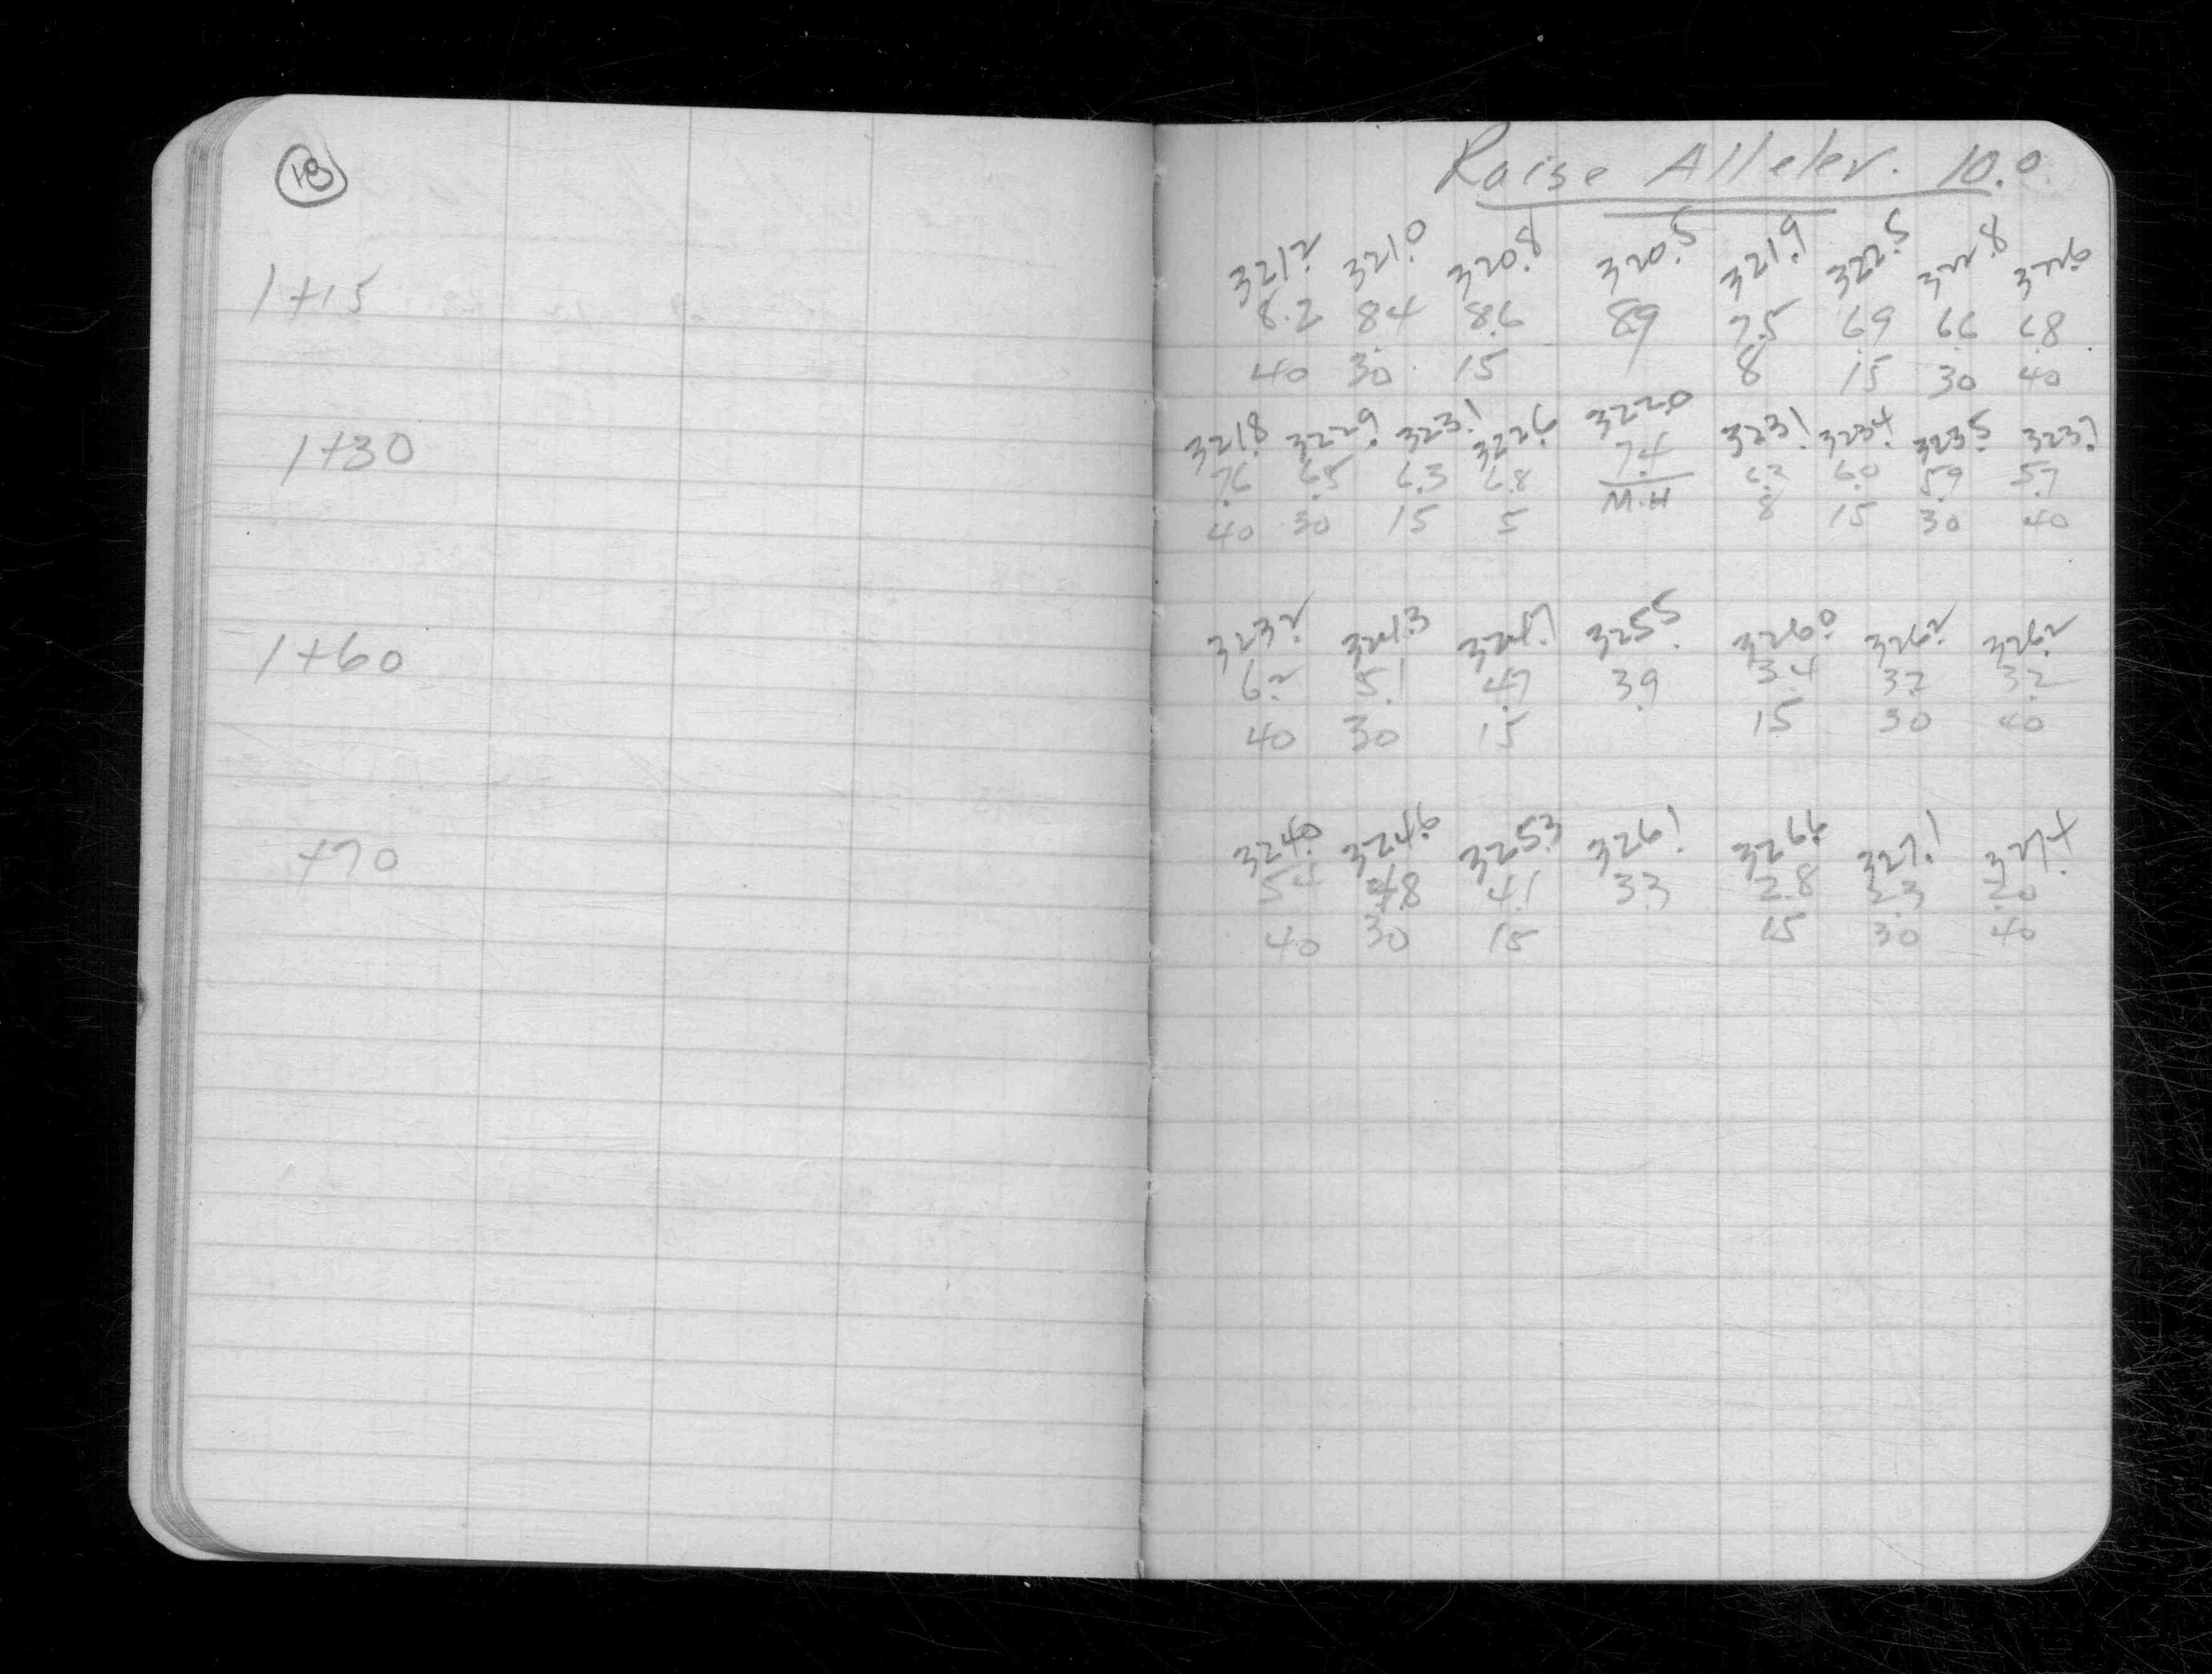 18
Raise All elev. 10.0
321.2 321.0 320.8 320.5 321.9 322.5 322.8 322.6
1+15 8.2 8.4 8.6 8.9 7.5 6.9 6.6 6.8
40 30 15 8 15 30 40
321.8 322.9 323.1 322.6 322.0 323.1 323.4 323.5 323.7
1+30 7.6 6.5 6.3 6.8 7.4 6.3 6.0 5.9 5.7
40 30 15 5 M.H 8 15 30 40
323.2 324.3 324.7 325.5 326.0 326.2 326.2
1+60 6.2 5.1 4.7 3.9 3.4 3.2 3.2
40 30 15 15 30 40
324.0 324.6 325.3 326.1 326.6 327.1 327.4
+70 5.4 4.8 4.1 3.3 2.8 2.3 2.0
40 30 15 15 30 40